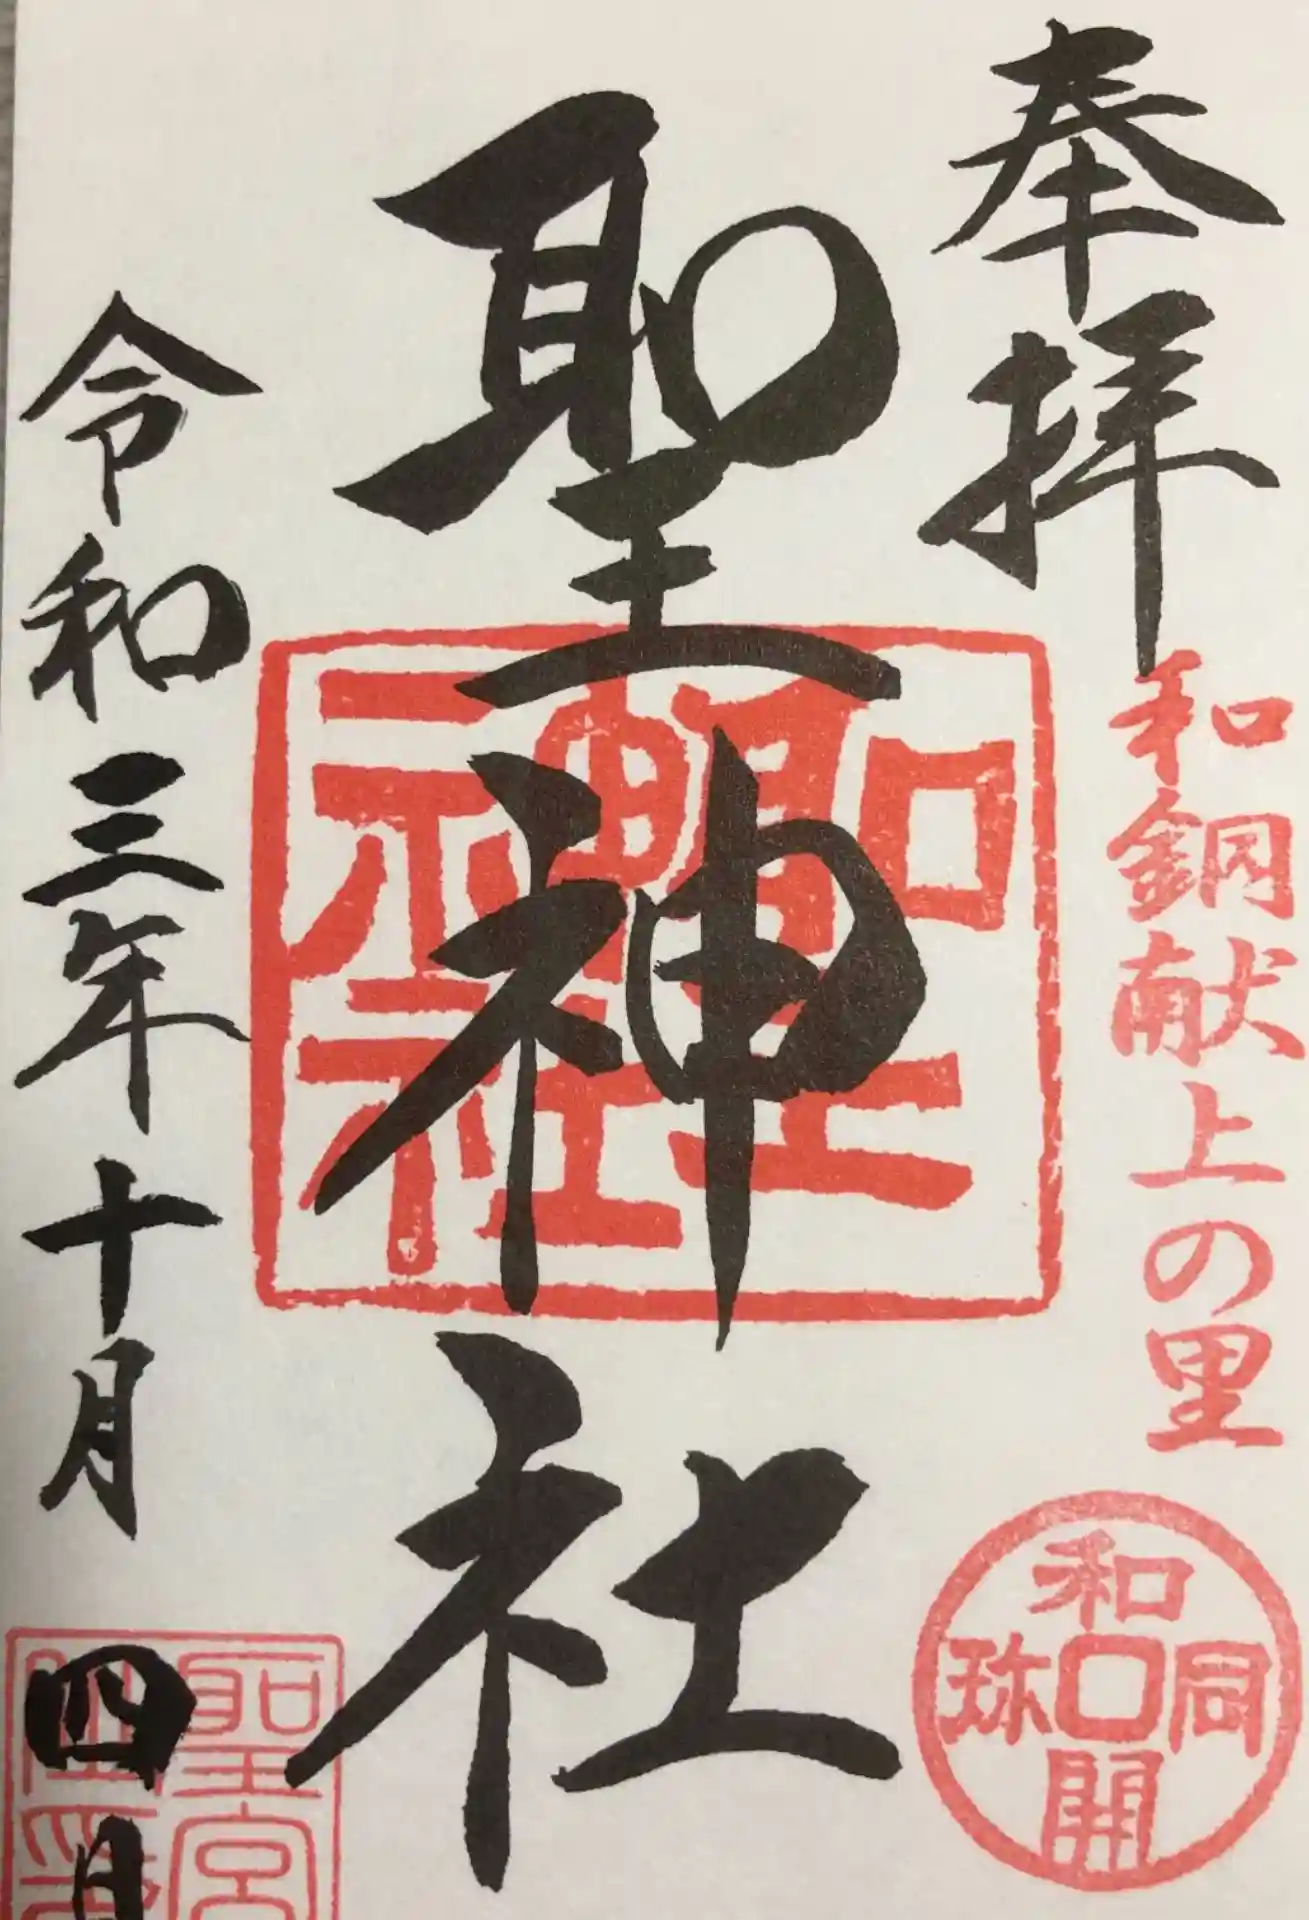 奉拝
和銅献上の里
和同開珎
聖神社
聖神社
令和三年十月四日
聖宮